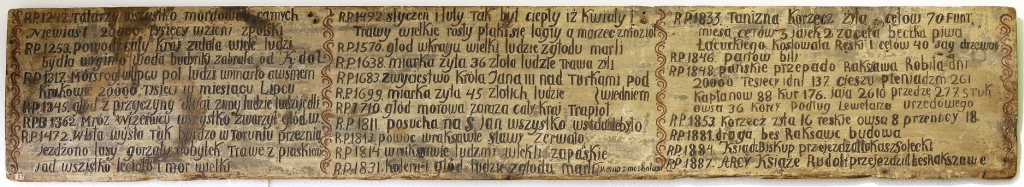 R.P.1242. Tatarzy wszystko mordowali samych
Niewiast 20000 Tysięcy wzieni zpolski
R.P.1253. powod cały Kray zalała wiele ludzi
bydła wyginęło Woda budynki zabrała od
R.P.1317. Mór srogi w lipcu pół ludzi wmarło awsmem
Krakowie 20000 Tysięci w miesiącu Lipcu
R.P.1345. głod z przyczyny długi zimy ludzie ludzi jedli
R.P.1362. Mróz w czerwcu wszystko zwarzył głód w.
R.P.1472. Wisła wysła tak bardzo w Toruniu
jezdzono lasy gorzały kobyłek Trawe z piaskiem
wszystko leciało i mor wielki
R.P.1492. styczen i luty Tak był ciepły iż Kwiaty i
Trawy wielkie rosły ptaki się lągły a marzec zmroził
R.P.1570. głod wkraju wielki ludzie zgłodu marli
R.P.1638. miarka żyta 36 złota ludzie Trawa żli
R.P.1683 zwyciestwo Króla Jana III nad Turkami pod
R.P.1699. miarka żyta 45 złotich ludzie (wiedniem
R.P.1710. głód morowa zaraza cały kraj Trapioł
R.P.1811. posucha na S Jan wszystko
R.P.1813. powoc wrakszawie stawy zerwało
R.P.1814 wrakszawie ludzmi wlekli zapaskie
R.P.1831. Kolera i głod ludzie zgłodu marli
R.P.1833 Tanizna Korzecz żyta 4 celow 70 funt.
miesa celow 3 jajek 2 zaceta beczka piwa
Łacuckiego Kosłowala Reski 1 celow 40 saγ drzewa
R.P.1846. panow bili
R.P.1848. panskie przepado Raksawa Robiła dni
20000 Tesięcy dni 137 cieszy pieniadzem 261
Kapłanow 88 Kur 176. Jaja 2610 przedze 277 stuk
owsa 36 Korcy podług Lewetarza urzedowego
R.P.1853 Korzecz żyta 16 reskie owsa 8 przenicy 18.
R.P.1881. droga bes Raksawe budowa
R.P.1884. Ksiądz Biskup przejezdzał Łukasz Solecki
R.P.1887. Arcy Książe Rudolf przejezdzał bes Rakszawe